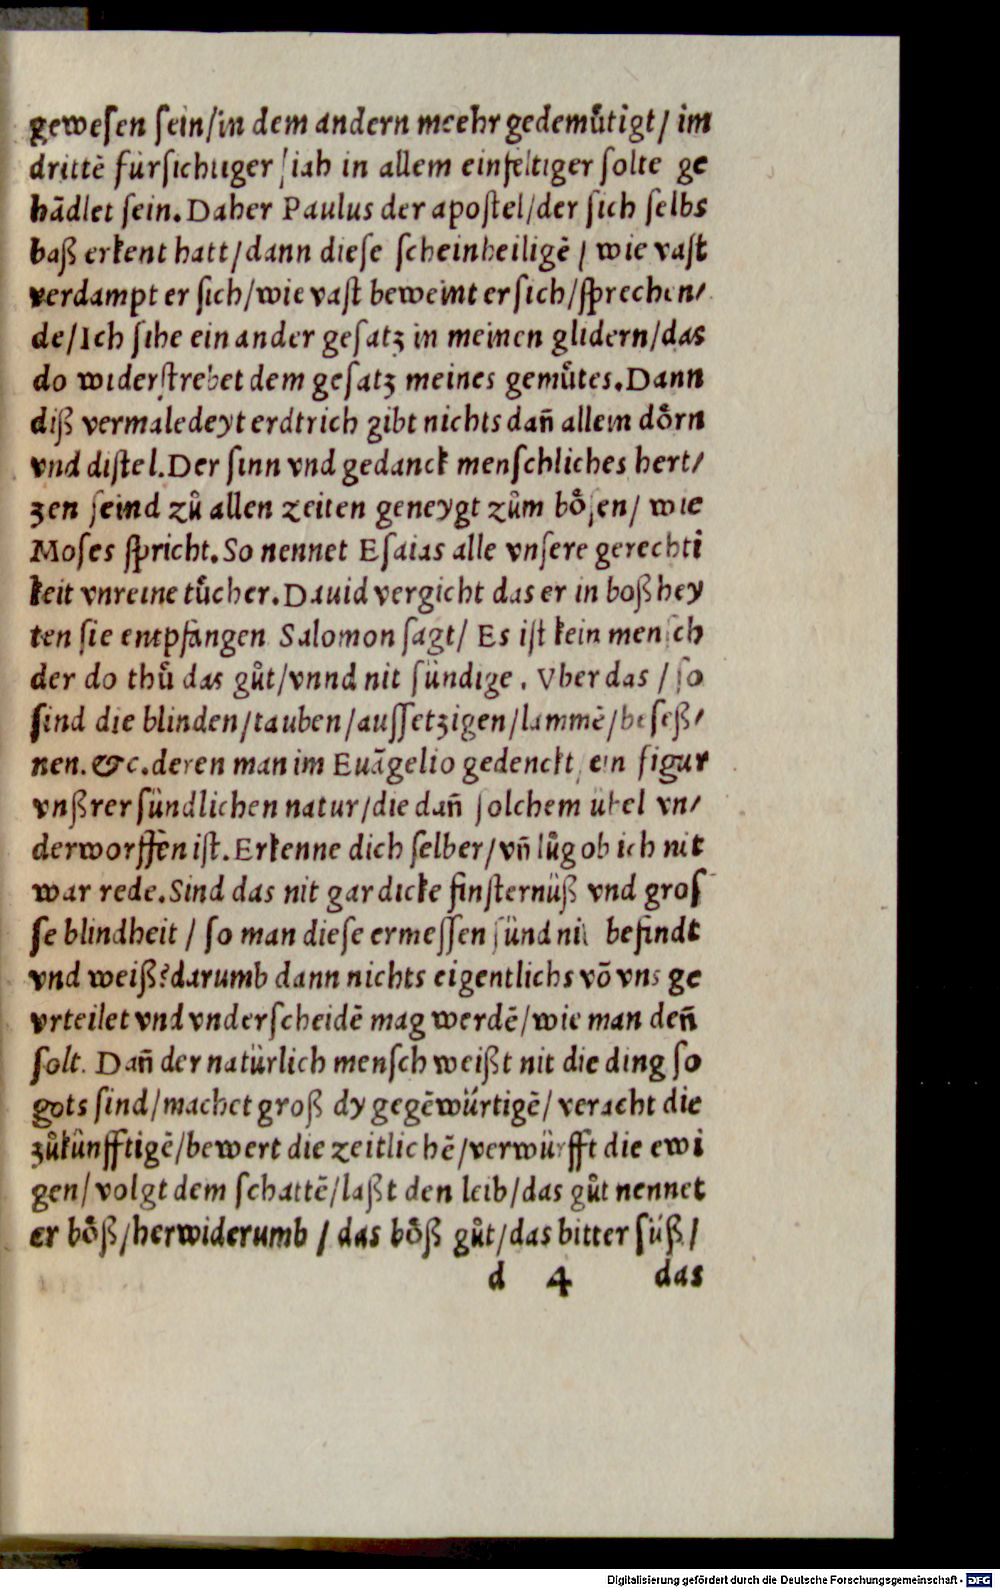 geweſen ſein/in dem andern meehr gedemuͤtigt/ im
drittē fürſichtiger/iah in allem einfeltiger ſolte ge
hādlet ſein. Daher Paulus der apoſtel/der ſich ſelbs
baß erkent hatt/dann dieſe ſcheinheiligē / wie vaſt
verdampt er ſich/wie vaſt beweint er ſich/ſprechen/
de/Ich ſihe ein ander geſatz in meinen glidern/das
do widerſtrebet dem geſatz meines gemuͤtes. Dann
diß vermaledeyt erdtrich gibt nichts dañ allein doͤrn
vnd diſtel. Der ſinn vnd gedanck menſchliches hert/
zen ſeind zuͦ allen zeiten geneygt zuͦm boͤſen/ wie
Moſes ſpricht. So nennet Eſaias alle vnſere gerechti
keit vnreine tuͤcher. Dauid vergicht das er in boßhey
ten ſie entpfangen Salomon ſagt/ Es iſt kein menſch
der do thuͦ das guͦt/vnnd nit ſündige. Vber das / ſo
ſind die blinden/tauben/auſſetzigen/lammē/beſeß/
nen. &c. deren man im Euāgelio gedenckt, ein figur
vnßrer ſündlichen natur/die dañ ſolchem übel vn/
derworffēn iſt. Erkenne dich ſelber/vñ luͦg ob ich nit
war rede. Sind das nit gar dicke finſternüß vnd groſ
ſe blindheit / ſo man dieſe ermeſſen ſünd nit befindt
vnd weiß? darumb dann nichts eigentlichs vō vns ge
vrteilet vnd vnderſcheidē mag werdē/wie man deñ
ſolt. Dañ der natürlich menſch weißt nit die ding ſo
gots ſind/machet groß dy gegēwürtigē/ veracht die
zuͦkünfftigē/bewert die zeitlichē/verwürfft die ewi
gen/volgt dem ſchattē/laßt den leib/das guͦt nennet
er boͤß/herwiderumb / das boͤß guͦt/das bitter ſüß/
d 4 das
Digitalisierung gefördert durch die Deutsche Forschungsgemeinschaft - DFG